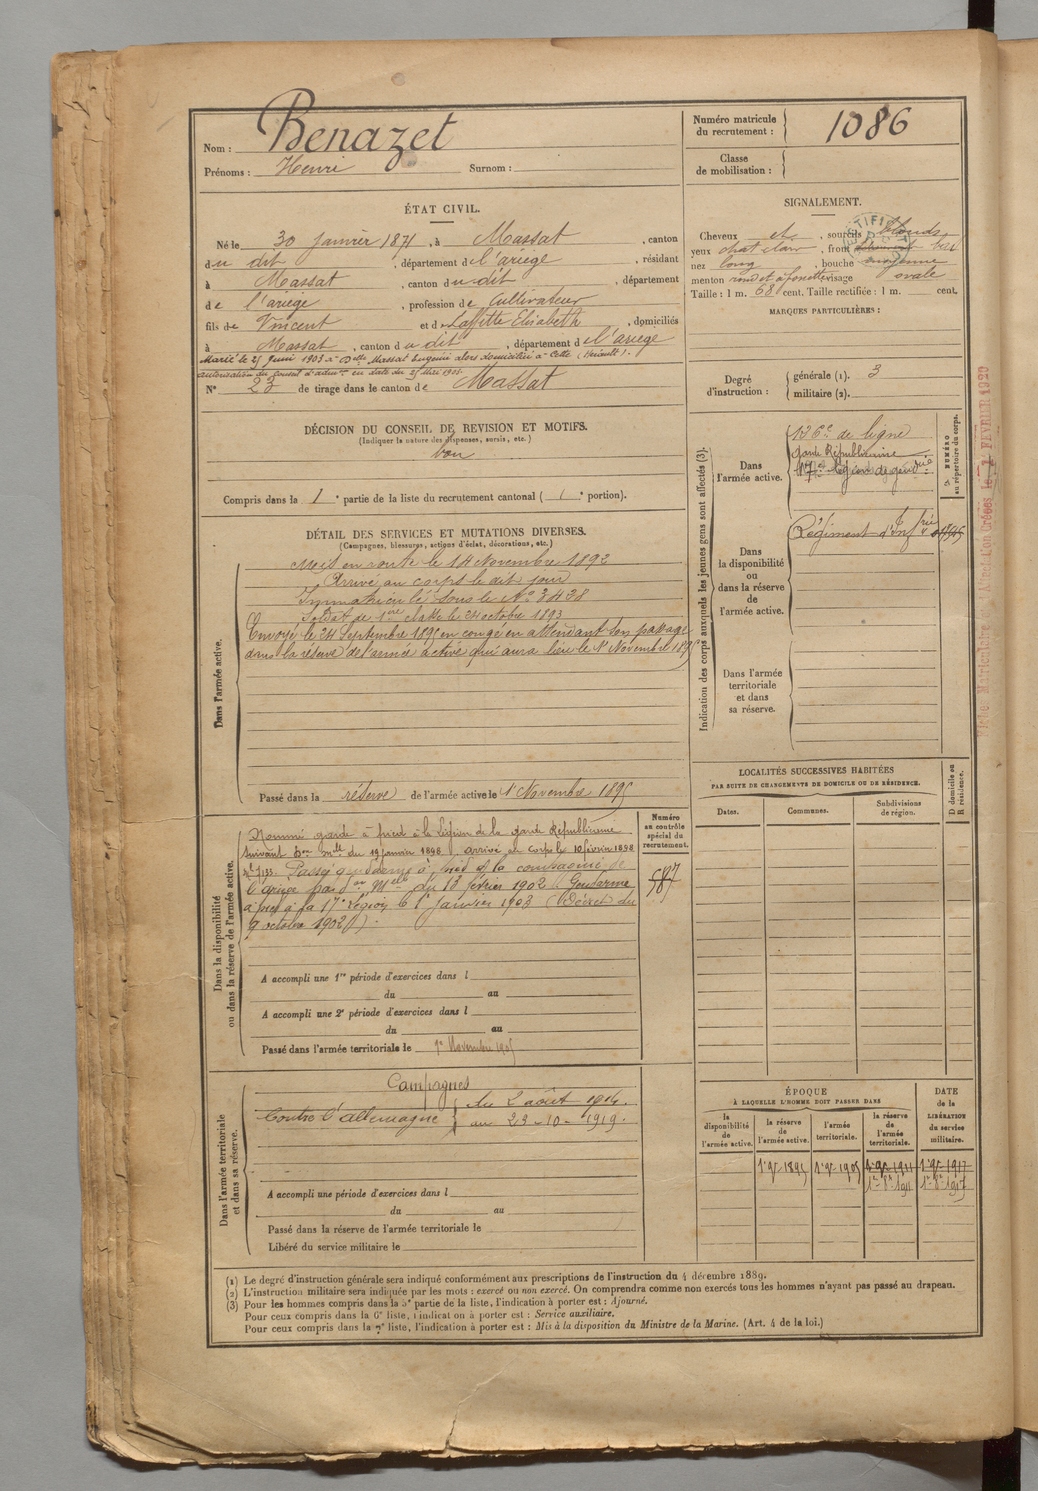 Nom : Benazet
Prénoms : Henri Surnom :
Numéro matricule du recrutement : 1086
Classe de mobilisation :
ÉTAT CIVIL.
Né le 30 janvier 1871, à Massat, canton
du dit, département de l'ariège, résidant
à Massat, canton du dit, département
de l'ariège, profession de cultivateur
fils de Vincent et de Laffitte Elisabeth, domiciliés
à Massat, canton du dit, département de l'ariège
Marié le 25 juin 1903 à Delle Massat Eugénie alors domiciliée à Cette (Hérault).
autorisation du Conseil d'admon en date du 25 Mai 1903
N° 23 de tirage dans le canton de Massat
SIGNALEMENT.
Cheveux et, sourcils blonds,
yeux chat clair, front bas
nez long, bouche moyenne
menton rond et à fossette visage ovale
Taille : 1 m. 68 cent. Taille rectifiée : 1 m. cent.
MARQUES PARTICULIÈRES :
Degré d'instruction : générale (1). 3
militaire (2).
DÉCISION DU CONSEIL DE REVISION ET MOTIFS.
(Indiquer la nature des dispenses, sursis, etc.)
bon
Compris dans la 1e partie de la liste du recrutement cantonal ( 1e portion).
DÉTAIL DES SERVICES ET MUTATIONS DIVERSES.
(Campagnes, blessures, actions d'éclat, décorations, etc.)
Dans l'armée active.
Mis en route le 14 Novembre 1892
Arrivé au corps le dit jour
Immatriculé sous le N° 3438
Soldat de 1ère classe le 24 octobre 1893
Envoyé le 24 Septembre 1895 en congé en attendant son passage
dans la réserve de l'armée active qui aura lieu le 1er Novembre 1895
Passé dans la réserve de l'armée active le 1er Novembre 1895
Indication des corps auxquels les jeunes gens sont affectés (3).
Dans l'armée active.
126e de ligne
Garde Républicaine
17e Légion de gendrie
Dans la disponibilité ou dans la réserve de l'armée active.
Régiment d'Infrie
Dans l'armée territoriale et dans sa réserve.
NUMÉRO au répertoire du corps.
Fiche Matriculaire d'Affectation Créées le 1 FÉVRIER 1929
Dans la disponibilité ou dans la réserve de l'armée active.
Numéro au contrôle spécial du recrutement.
587
Nommé garde à pied à la Légion de la garde Républicaine
suivant Don mlle du 19 janvier 1898, arrivé au corps le 10 février 1898
Passé gendarme à pied à la compagnie de
l'ariège par don Melle du 18 février 1902. Gendarme
à pied à la 17e Légion le 1er janvier 1903 (Décret du
9 octobre 1902).
A accompli une 1re période d'exercices dans l
du au
A accompli une 2e période d'exercices dans l
du au
Passé dans l'armée territoriale le 1er Novembre 1905
LOCALITÉS SUCCESSIVES HABITÉES
PAR SUITE DE CHANGEMENTS DE DOMICILE OU DE RÉSIDENCE.
Dates. Communes. Subdivisions de région. D domicile ou R résidence.
Dans l'armée territoriale et dans sa réserve.
Campagnes
Contre l'allemagne { du 2 août 1914.
au 23-10-1919.
A accompli une période d'exercices dans l
du au
Passé dans la réserve de l'armée territoriale le
Libéré du service militaire le
ÉPOQUE
À LAQUELLE L'HOMME DOIT PASSER DANS
DATE de la LIBÉRATION du service militaire.
la disponibilité de l'armée active. la réserve de l'armée active. l'armée territoriale. la réserve de l'armée territoriale.
1er 9e 1895 1er 9e 1905 1er 9e 1911 1er 9e 1917
(1) Le degré d'instruction générale sera indiqué conformément aux prescriptions de l'instruction du 4 décembre 1889.
(2) L'instruction militaire sera indiquée par les mots : exercé ou non exercé. On comprendra comme non exercés tous les hommes n'ayant pas passé au drapeau.
(3) Pour les hommes compris dans la 5e partie de la liste, l'indication à porter est : Ajourné.
Pour ceux compris dans la 6e liste, l'indication à porter est : Service auxiliaire.
Pour ceux compris dans la 7e liste, l'indication à porter est : Mis à la disposition du Ministre de la Marine. (Art. 4 de la loi.)